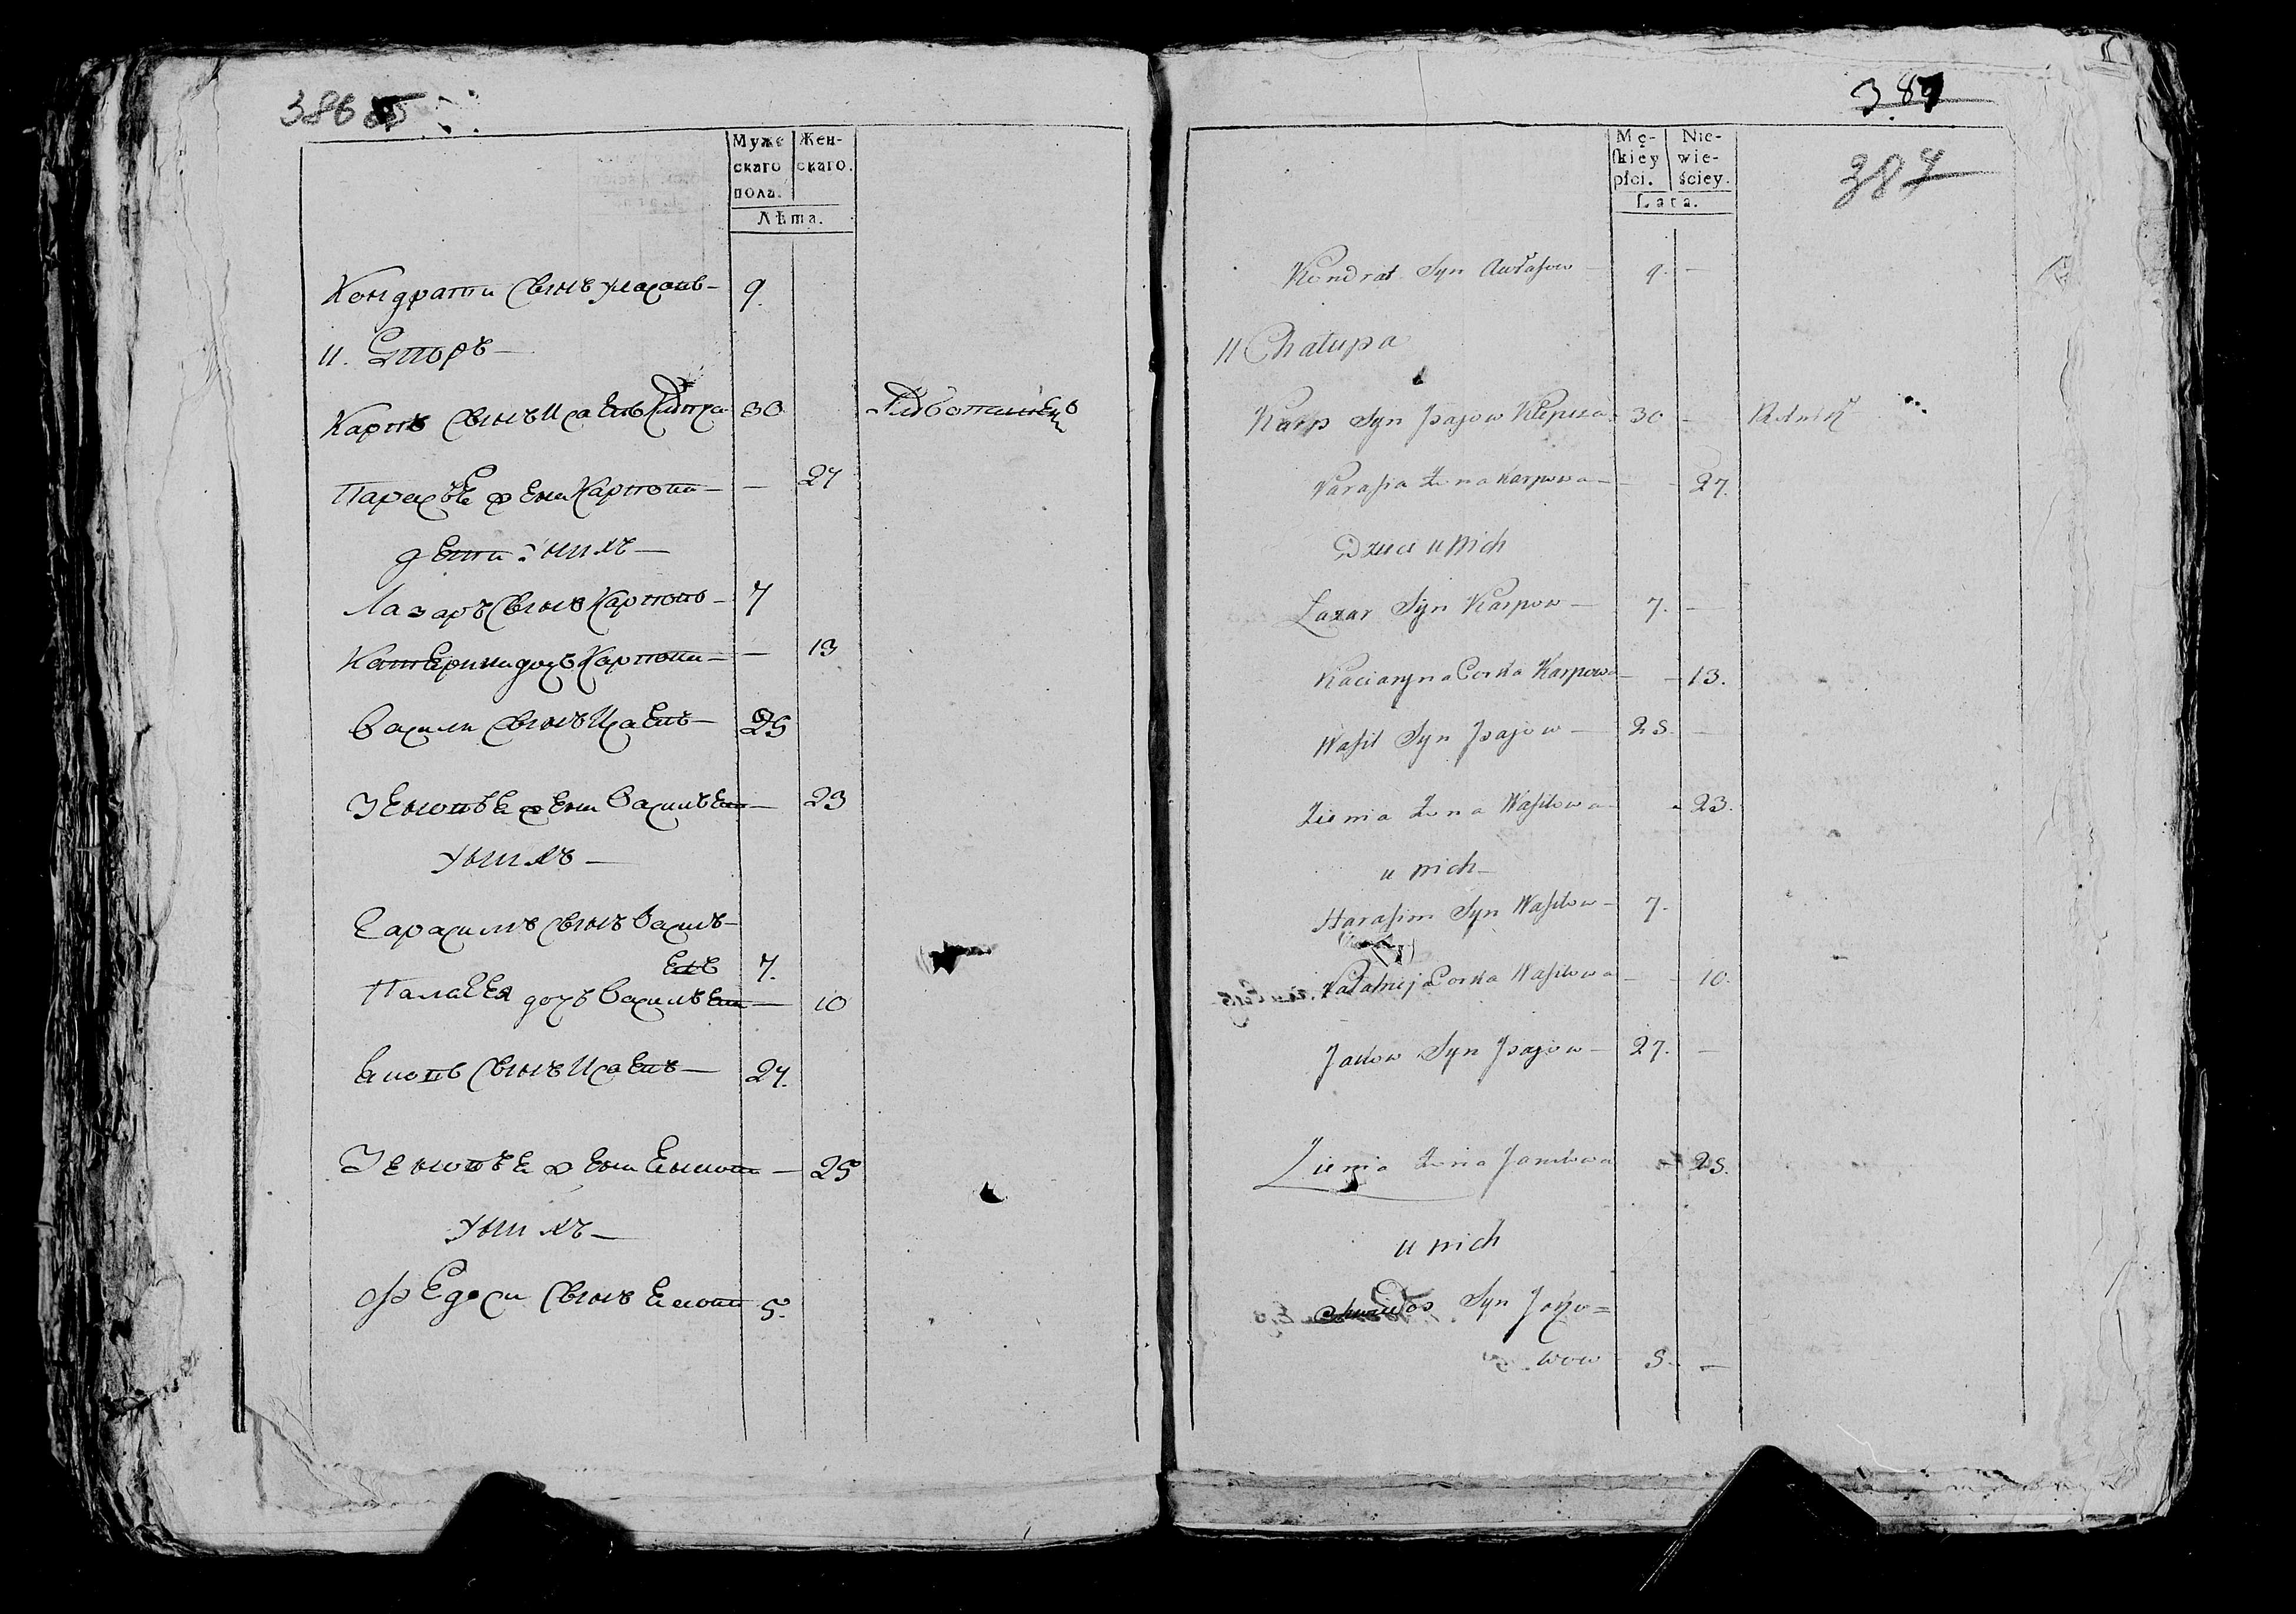 386
Муже
скаго
пола.
Жен-
скаго.
Лѣта.
Кондрати сынъ 9.
11. Дворъ —
Карпъ сынъ Исаевъ 30
— 27
дети у нихъ —
Лазаръ сынъ Карповъ — 7
Катерина дочъ Карпова — 13
Васили сынъ Исаевъ — 25
Зеновъя жена Васильева — 23
у нихъ —
Гарасимъ сынъ Василь-
евъ 7.
Палагея дочъ Васильева — 10
Яковъ сынъ Исаевъ — 27.
Зеновъя жена Якова — 25
у нихъ —
Федоси сынъ Якова 5.
387
387
Mę-
ſkiey
płci.
Nie-
wie-
ściey.
Lata.
Kondrat Syn 9. —
11 Chałupa
Karp Syn Jsajow 30 —
Parasia Żona Karpowa — 27.
Dzieci u nich
Łazar Syn Karpow — 7. —
Kaciaryna Corka Karpowa — 13.
Wasil Syn Jsajow — 25. —
Zienia Żona Wasilowa 23.
u nich —
Harasim Syn Wasilow — 7.
Corka Wasilowa — 10.
Jakow Syn Jsajow — 27. —
Zienia Żona 25.
u nich
Syn Jako=
wow 5. —